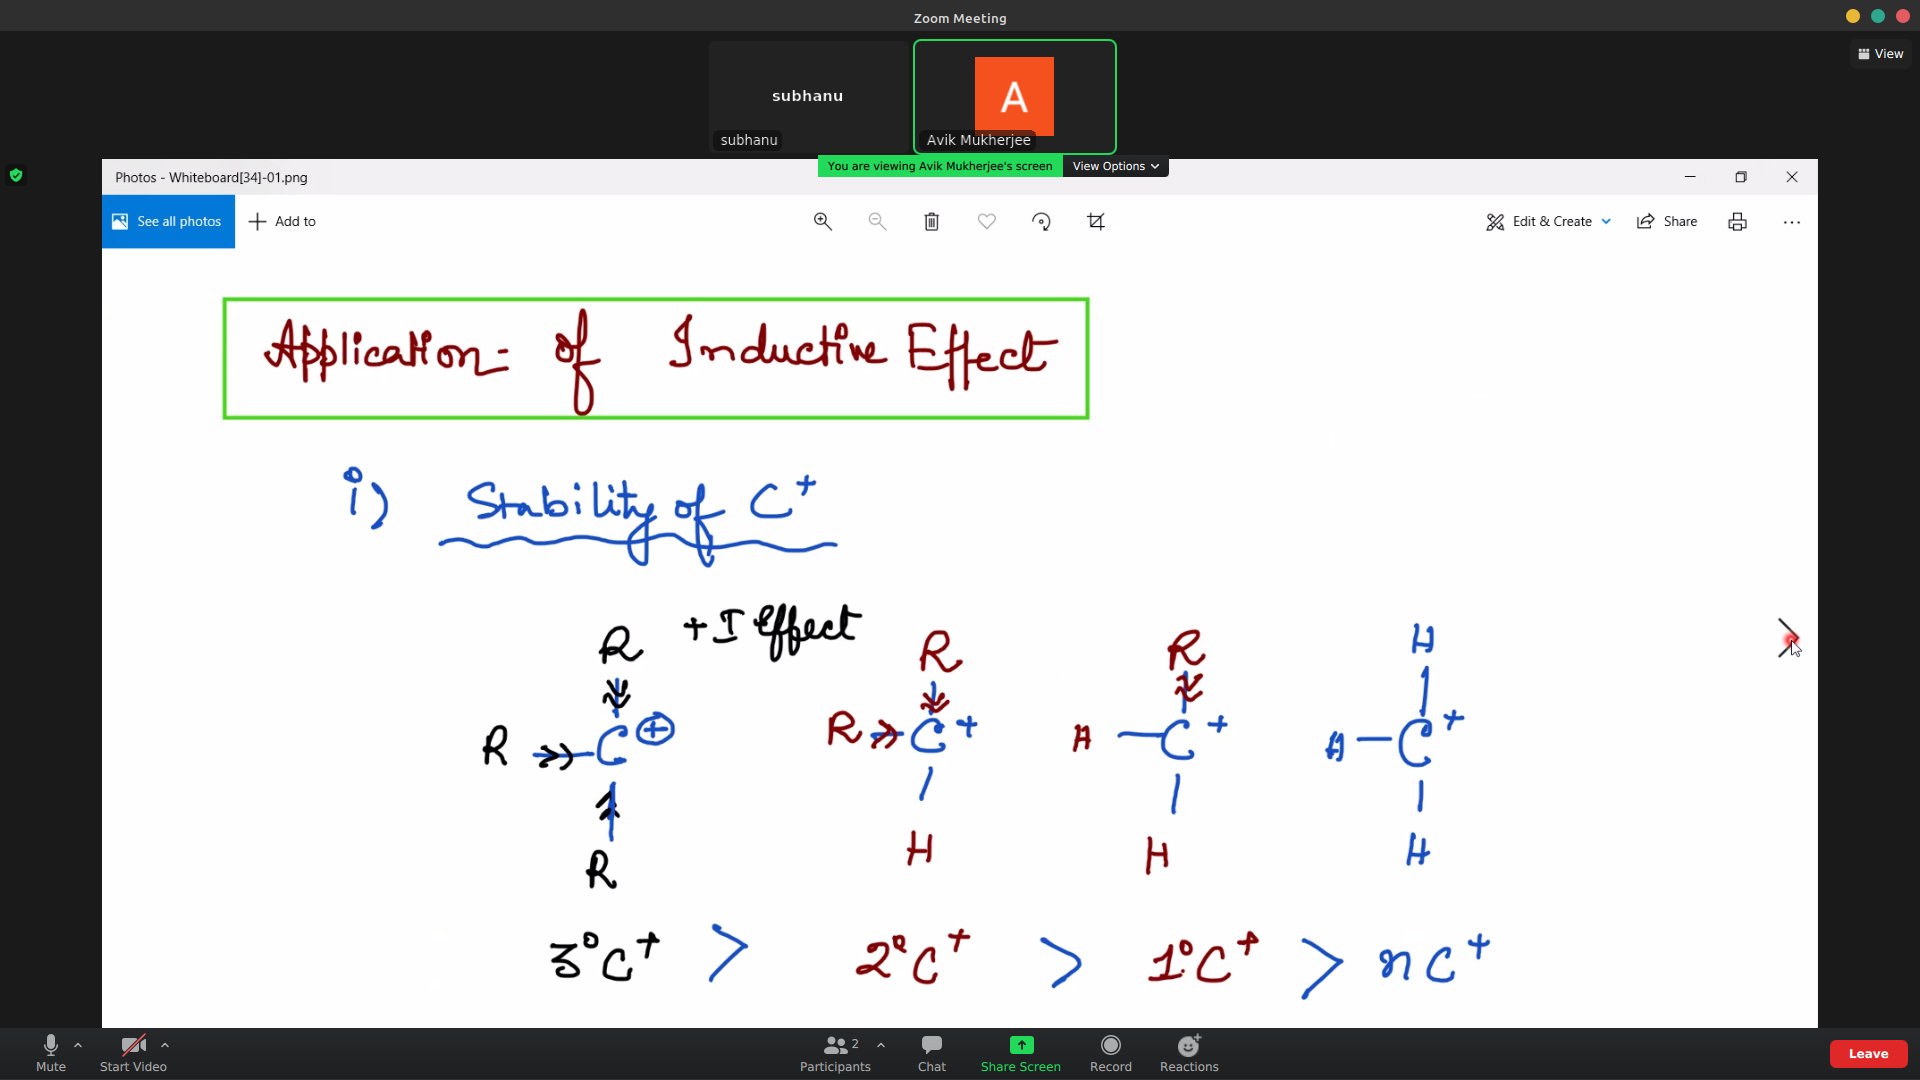 Zoom Meeting
View
subhanu
A
subhanu
Avik Mukherjee
You are viewing Avik Mukherjee's screen View Options
Photos - Whiteboard[34]-01.png
See all photos Add to Edit & Create Share
Application of Inductive Effect
i) Stability of C+
+I Effect
R R R H
R C + R C + H C + H C +
R H H H
3° C+ > 2° C+ > 1° C+ > n C+
Mute Start Video Participants 2 Chat Share Screen Record Reactions Leave